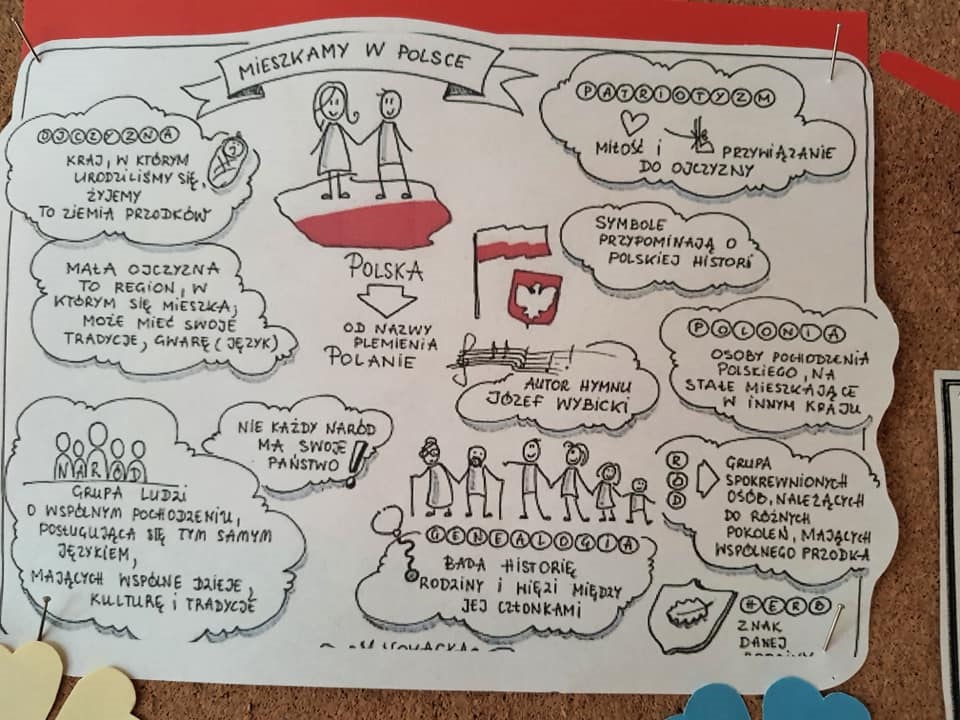 MIESZKAMY W POLSCE
OJCZYZNA
KRAJ, W KTÓRYM
URODZILIŚMY SIĘ,
ŻYJEMY
TO ZIEMIA PRZODKÓW
PATRIOTYZM
MIŁOŚĆ I PRZYWIĄZANIE
DO OJCZYZNY
MAŁA OJCZYZNA
TO REGION, W
KTÓRYM SIĘ MIESZKA;
MOŻE MIEĆ SWOJE
TRADYCJE, GWARĘ (JĘZYK)
POLSKA
OD NAZWY
PLEMIENIA
POLANIE
SYMBOLE
PRZYPOMINAJĄ O
POLSKIEJ HISTORI
AUTOR HYMNU
JÓZEF WYBICKI
POLONIA
OSOBY POCHODZENIA
POLSKIEGO, NA
STAŁE MIESZKAJĄCE
W INNYM KRAJU
NARÓD
GRUPA LUDZI
O WSPÓLNYM POCHODZENIU,
POSŁUGUJĄCA SIĘ TYM SAMYM
JĘZYKIEM,
MAJĄCYCH WSPÓLNE DZIEJE,
KULTURĘ I TRADYCJE
NIE KAŻDY NARÓD
MA SWOJE
PAŃSTWO!
GENEALOGIA
BADA HISTORIĘ
RODZINY I WIĘZI MIĘDZY
JEJ CZŁONKAMI
RÓD
GRUPA
SPOKREWNIONYCH
OSÓB, NALEŻĄCYCH
DO RÓŻNYCH
POKOLEŃ, MAJĄCYCH
WSPÓLNEGO PRZODKA
HERB
ZNAK
DANEJ